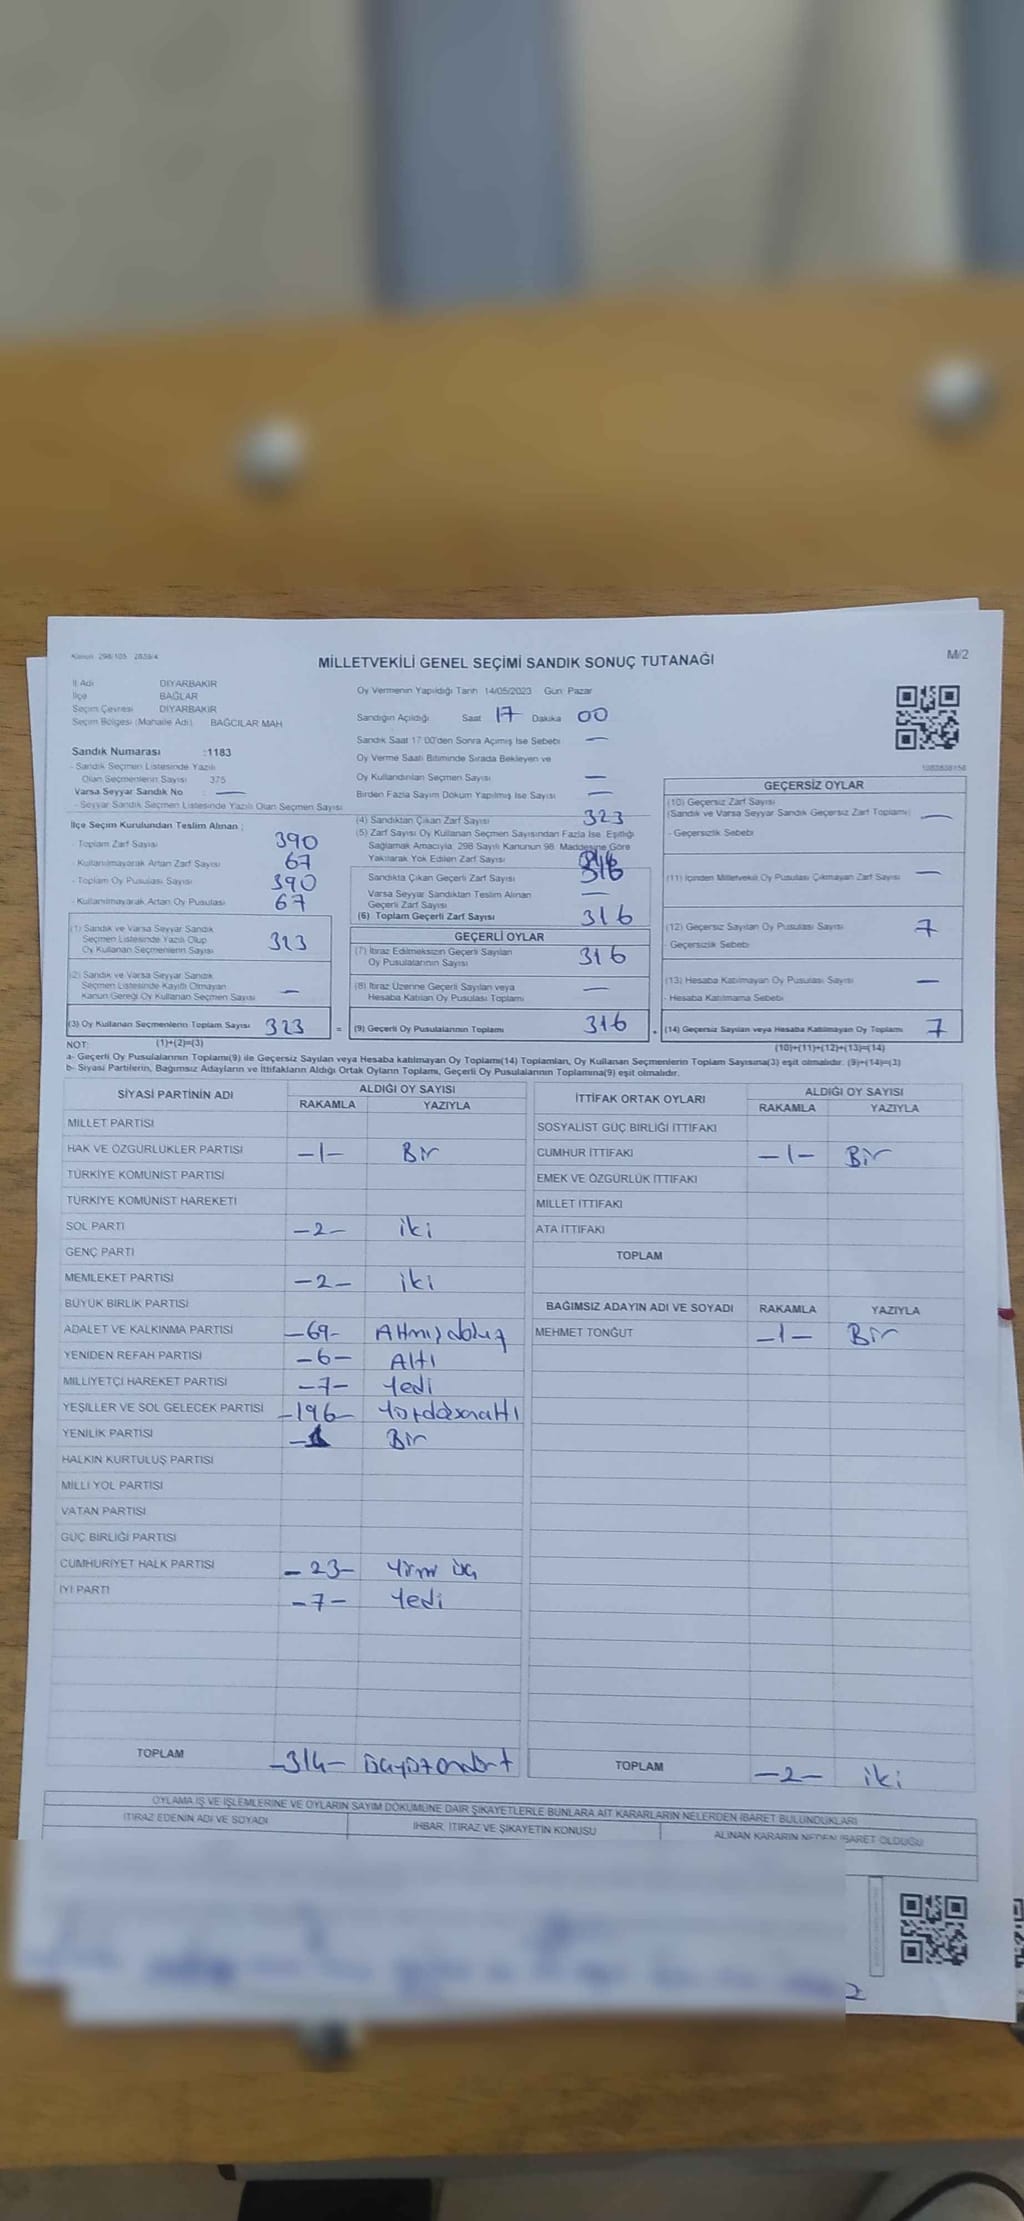 Kanun 298/105 2839/4
MİLLETVEKİLİ GENEL SEÇİMİ SANDIK SONUÇ TUTANAĞI
M/2
İl Adı DİYARBAKIR
İlçe BAĞLAR
Seçim Çevresi DİYARBAKIR
Seçim Bölgesi (Mahalle Adı) BAĞCILAR MAH
Sandık Numarası :1183
- Sandık Seçmen Listesinde Yazılı
Olan Seçmenlerin Sayısı 375
Varsa Seyyar Sandık No : —
- Seyyar Sandık Seçmen Listesinde Yazılı Olan Seçmen Sayısı
İlçe Seçim Kurulundan Teslim Alınan ;
- Toplam Zarf Sayısı 390
- Kullanılmayarak Artan Zarf Sayısı 67
- Toplam Oy Pusulası Sayısı 390
- Kullanılmayarak Artan Oy Pusulası 67
(1) Sandık ve Varsa Seyyar Sandık
Seçmen Listesinde Yazılı Olup
Oy Kullanan Seçmenlerin Sayısı 323
(2) Sandık ve Varsa Seyyar Sandık
Seçmen Listesinde Kayıtlı Olmayan
Kanun Gereği Oy Kullanan Seçmen Sayısı —
(3) Oy Kullanan Seçmenlerin Toplam Sayısı 323
Oy Vermenin Yapıldığı Tarih 14/05/2023 Gün Pazar
Sandığın Açıldığı Saat 17 Dakika 00
Sandık Saat 17:00'den Sonra Açılmış İse Sebebi —
Oy Verme Saati Bitiminde Sırada Bekleyen ve
Oy Kullandırılan Seçmen Sayısı —
Birden Fazla Sayım Döküm Yapılmış İse Sayısı —
(4) Sandıktan Çıkan Zarf Sayısı 323
(5) Zarf Sayısı Oy Kullanan Seçmen Sayısından Fazla İse, Eşitliği
Sağlamak Amacıyla, 298 Sayılı Kanunun 98. Maddesine Göre
Yakılarak Yok Edilen Zarf Sayısı
Sandıkta Çıkan Geçerli Zarf Sayısı 316
Varsa Seyyar Sandıktan Teslim Alınan
Geçerli Zarf Sayısı —
(6) Toplam Geçerli Zarf Sayısı 316
GEÇERLİ OYLAR
(7) İtiraz Edilmeksizin Geçerli Sayılan
Oy Pusulalarının Sayısı 316
(8) İtiraz Üzerine Geçerli Sayılan veya
Hesaba Katılan Oy Pusulası Toplamı —
= (9) Geçerli Oy Pusulalarının Toplamı 316
GEÇERSİZ OYLAR
(10) Geçersiz Zarf Sayısı
(Sandık ve Varsa Seyyar Sandık Geçersiz Zarf Toplamı) —
- Geçersizlik Sebebi
(11) İçinden Milletvekili Oy Pusulası Çıkmayan Zarf Sayısı —
(12) Geçersiz Sayılan Oy Pusulası Sayısı 7
- Geçersizlik Sebebi
(13) Hesaba Katılmayan Oy Pusulası Sayısı —
- Hesaba Katılmama Sebebi
(14) Geçersiz Sayılan veya Hesaba Katılmayan Oy Toplamı 7
NOT: (1)+(2)=(3)
(10)+(11)+(12)+(13)=(14)
a- Geçerli Oy Pusulalarının Toplamı(9) ile Geçersiz Sayılan veya Hesaba katılmayan Oy Toplamı(14) Toplamları, Oy Kullanan Seçmenlerin Toplam Sayısına(3) eşit olmalıdır. (9)+(14)=(3)
b- Siyasi Partilerin, Bağımsız Adayların ve İttifakların Aldığı Ortak Oyların Toplamı, Geçerli Oy Pusulalarının Toplamına(9) eşit olmalıdır.
SİYASİ PARTİNİN ADI ALDIĞI OY SAYISI
RAKAMLA YAZIYLA
MİLLET PARTİSİ
HAK VE ÖZGÜRLÜKLER PARTİSİ -1- Bir
TÜRKİYE KOMÜNİST PARTİSİ
TÜRKİYE KOMÜNİST HAREKETİ
SOL PARTİ -2- iki
GENÇ PARTİ
MEMLEKET PARTİSİ -2- iki
BÜYÜK BİRLİK PARTİSİ
ADALET VE KALKINMA PARTİSİ -69-
YENİDEN REFAH PARTİSİ -6- Altı
MİLLİYETÇİ HAREKET PARTİSİ -7- Yedi
YEŞİLLER VE SOL GELECEK PARTİSİ -196-
YENİLİK PARTİSİ -1 Bir
HALKIN KURTULUŞ PARTİSİ
MİLLİ YOL PARTİSİ
VATAN PARTİSİ
GÜÇ BİRLİĞİ PARTİSİ
CUMHURİYET HALK PARTİSİ -23- Yirmi üç
İYİ PARTİ -7- Yedi
TOPLAM -314- Üçyüzondört
İTTİFAK ORTAK OYLARI ALDIĞI OY SAYISI
RAKAMLA YAZIYLA
SOSYALİST GÜÇ BİRLİĞİ İTTİFAKI
CUMHUR İTTİFAKI -1- Bir
EMEK VE ÖZGÜRLÜK İTTİFAKI
MİLLET İTTİFAKI
ATA İTTİFAKI
TOPLAM
BAĞIMSIZ ADAYIN ADI VE SOYADI RAKAMLA YAZIYLA
MEHMET TONĞUT -1- Bir
TOPLAM -2- iki
OYLAMA İŞ VE İŞLEMLERİNE VE OYLARIN SAYIM DÖKÜMÜNE DAİR ŞİKAYETLERLE BUNLARA AİT KARARLARIN NELERDEN İBARET BULUNDUKLARI
İTİRAZ EDENİN ADI VE SOYADI
İHBAR, İTİRAZ VE ŞİKAYETİN KONUSU
ALINAN KARARIN NEDEN İBARET OLDUĞU